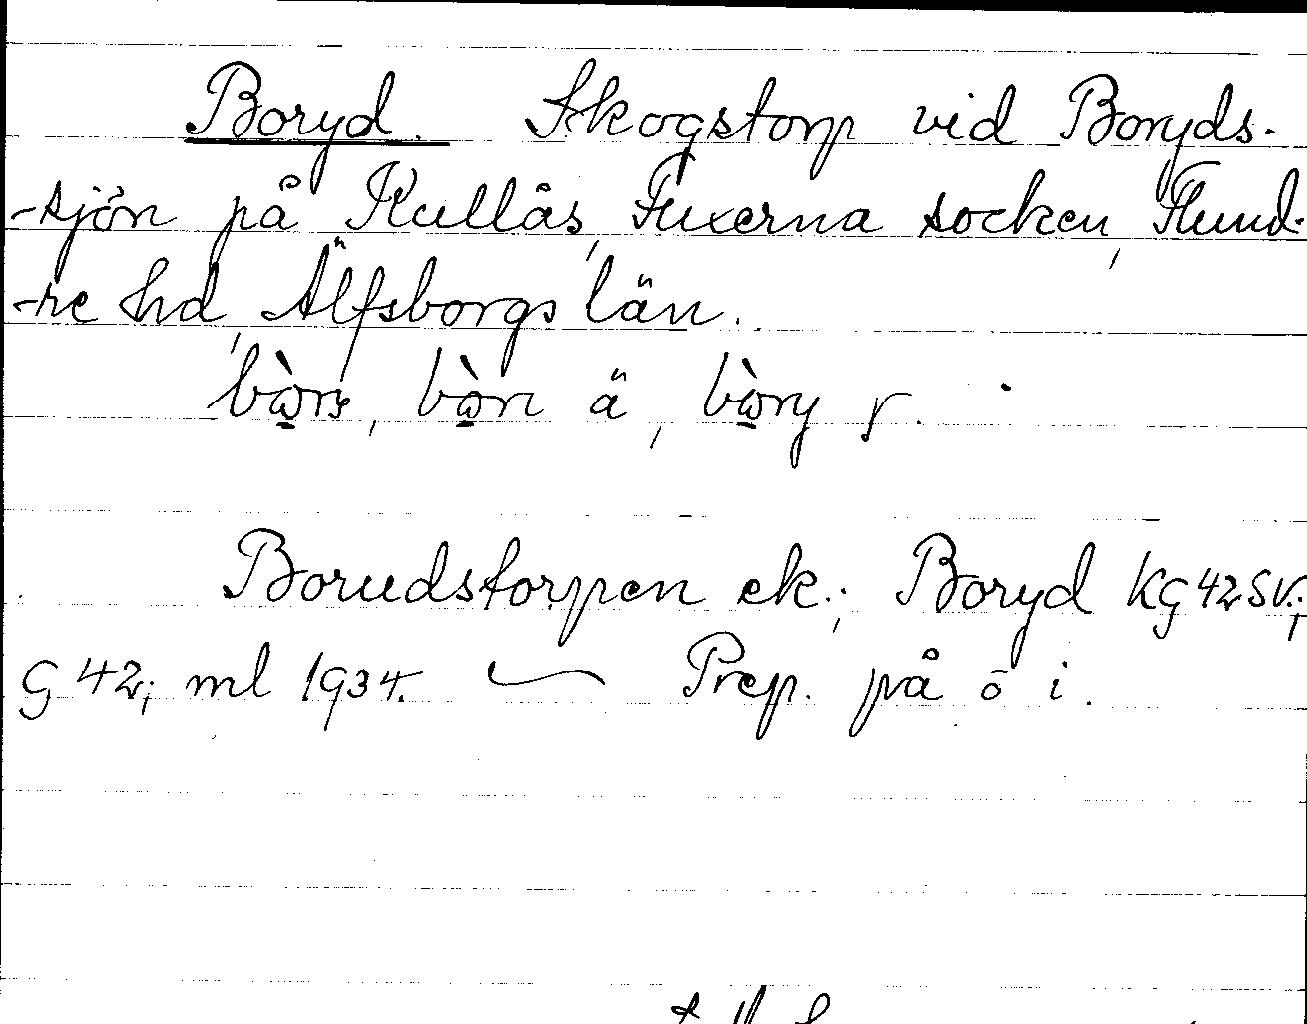 Boryd. Skogstorp vid Boryds-
-sjön på Kullås, Fuxerna socken, Flund-
-re hd, Älfsborgs län.
ä
Borudstorpen ek.; Boryd KG 42 SV.;
G 42; ml 1934. — Prep. på o i.